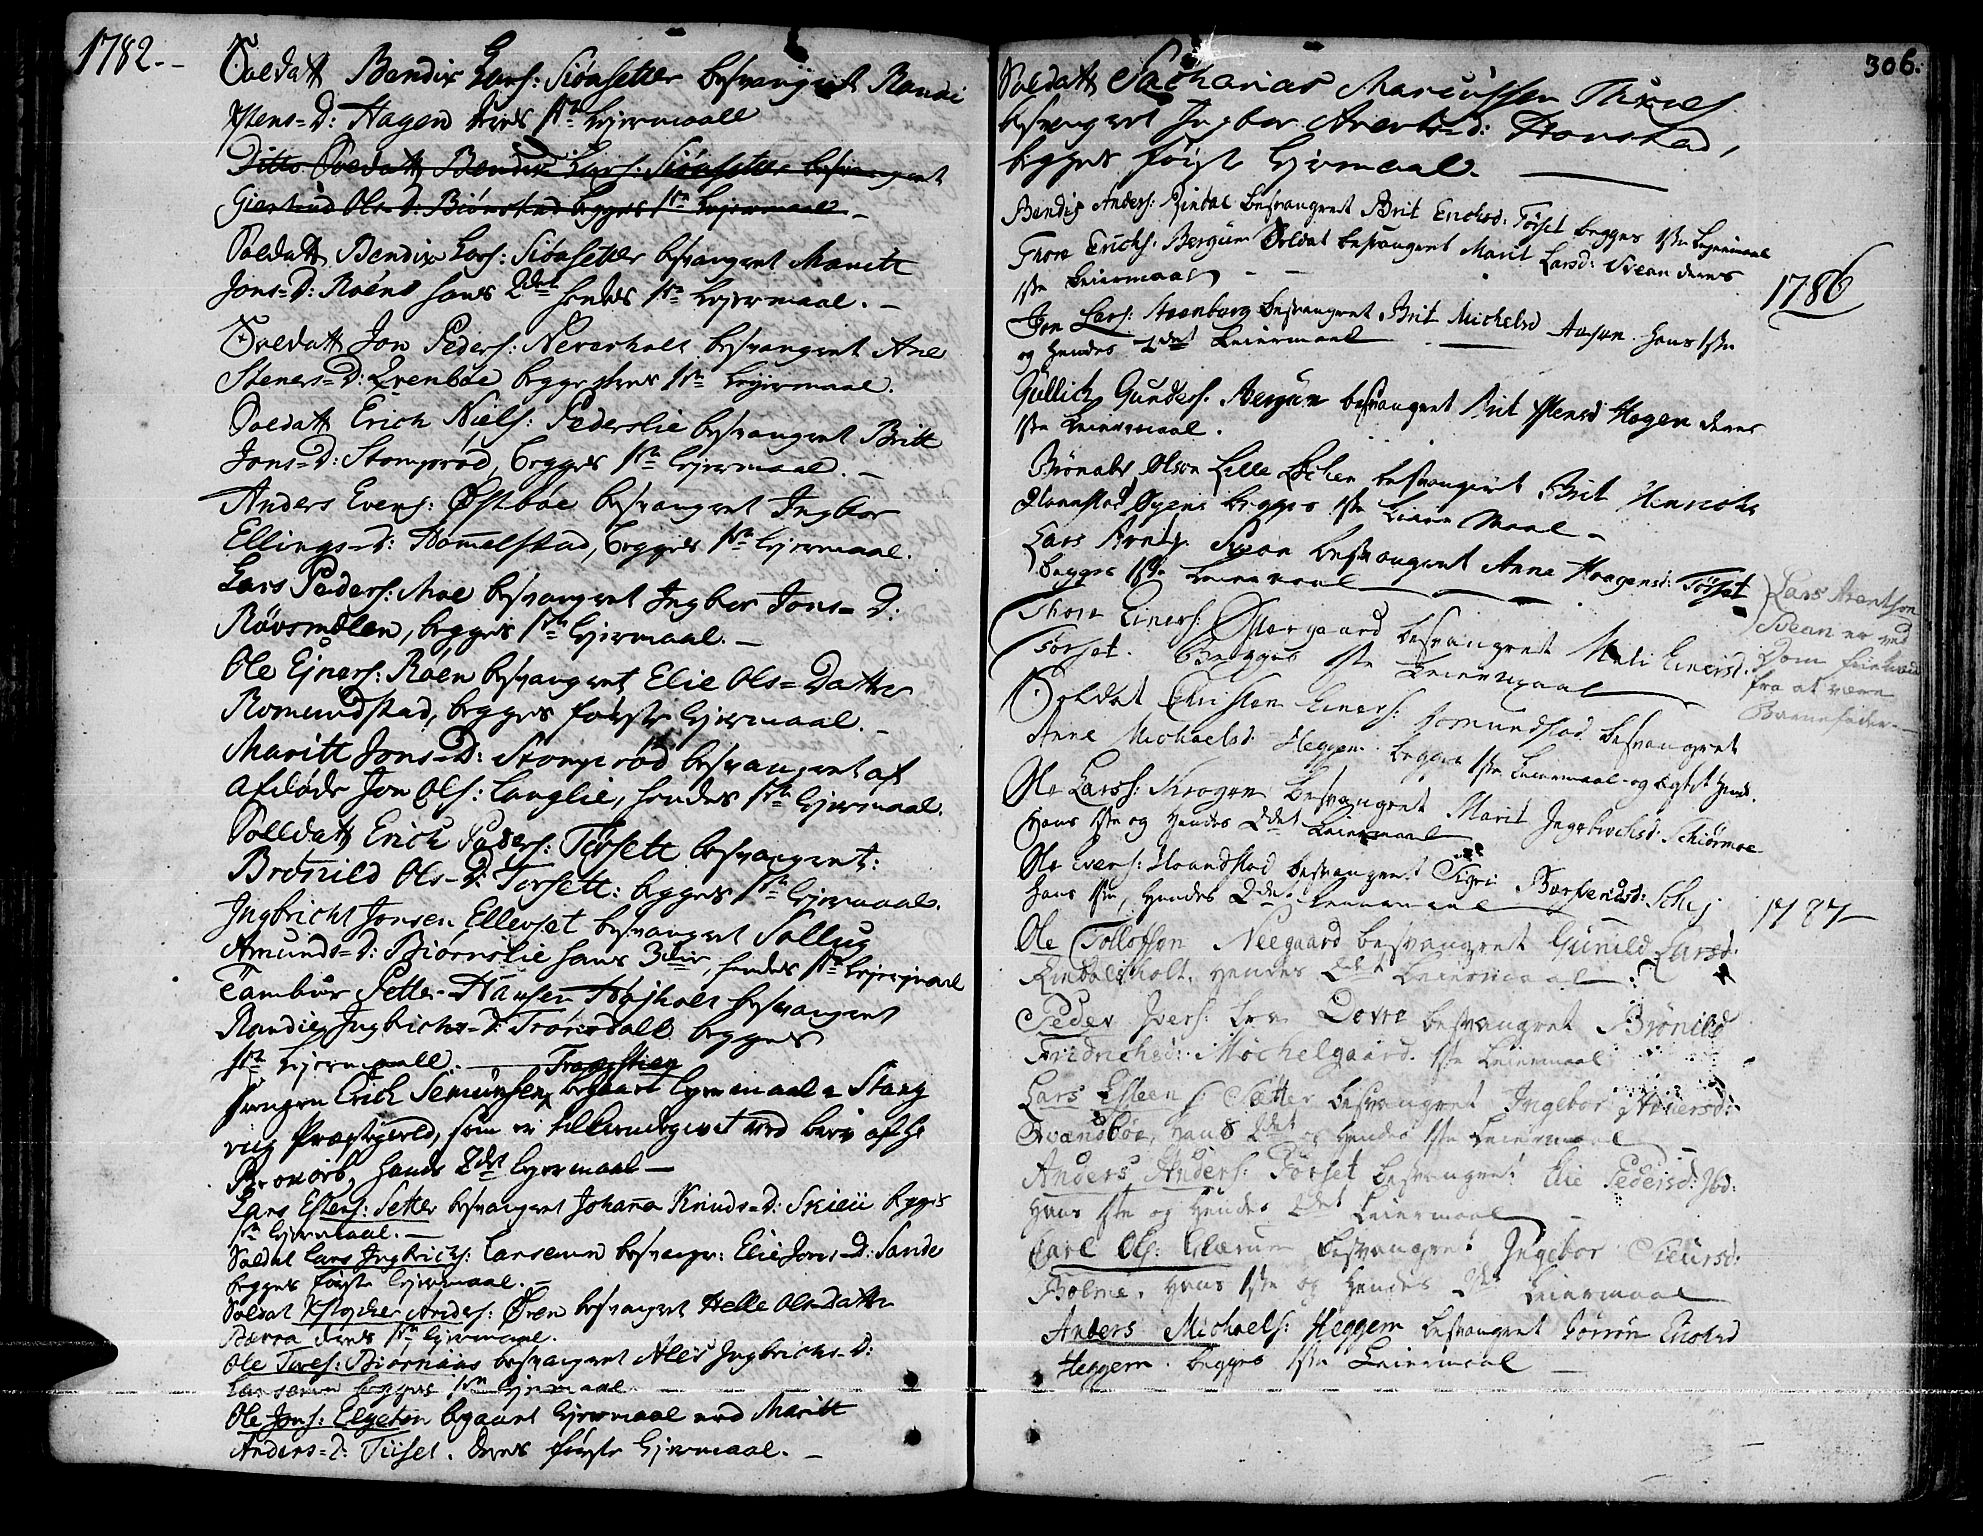 1782.-
Soldatt Bendix Lars: Siönsetter besvangret Randi
Istens=D: Hagen deres 1ste Lejermaall
Ditto Soldatt Bendix Lars: Siönsetter besvangret
Giertrud Ols=D: Biönstad begges 1ste Lejermaal –
Soldatt Bendix Lars: Siönsetter besvangret Maritt
Jons=D: Roëns hans 2det hendes 1ste Lejermaal. –
Soldatt Jon Peders: Neverholt besvangret Ane
Steners=D: Qvenböe begge deres 1ste Lejermaal.
Soldatt Erich Niels: Pederslie besvangret Britt
Jons=D: Stomprød, begges 1ste Lejermaal. –
Anders Evens: Østböe besvangret Ingbor
Ellings=D: Hammelstad, begges 1ste Lejermaal.
Lars Peders: Moe besvangret Ingbor Jons=D:
Røvsmølen, begges 1ste Lejermaal. –
Ole Ejners: Roen besvangret Elie Ols=Datter
Romundstad, begges første Lejermaal. –
Maritt Jons=D: Stomprød besvangret af
afdøde Jon Ols: Langlie, hendes 1ste Lejermaal.
Solldatt Erich Peders: Tørsett besvangret:
Brønild Ols=D: Torsett: begges 1ste Lejermaal.
Ingbricht Jonsen Ellevset besvangret Sollug
Amunds=D: Biørnslie hans 3die, hendes 1ste Lejermaal
Tambur Petter Hansen Højholt besvangret
Randie Ingbrichts=D: Tronsdall begges
1ste Lejermaall. –
Drengen Erich Semundsen begaaet Lejermaal i Stang
vig Præstegield, som er tilkiendegivet ved brev af Hr
Bronorb, hands 2det Lejermaal –
Lars Estens: Setter besvangret Johanna Knuds=D: Skiei begges
1ste Lejermaal. –
Soldat Lars Ingbrichs: Larsemn besvangr: Elie Jons=D: Sande
begges første Lejermaal. –
Soldat Kristopher Anders: Ören besvangret Helle Ols=Datter
Bævra deres 1ste Lejermaal.
Ole Tores: Biørnaas besvangret Ales Ingbrichs=D:
begges 1ste Lejermaal
Ole Jons: Elgeton begaaet Lejermaal med Maritt
Anders=D: Tiset. deres første Lejermaal. –
306.
Soldatt Sacharias Marcussen
besvangret Ingbor Arents=D: Honstad,
begges første Lejermaal. –
Bendix Anders: Rindal besvangret Brit Erichsd: Tørset begges 1ste Leiermaal
Thore Erichs: Bergum Soldat besvangret Marit Larsd: Svean deres
1ste Leiermaal – –
1786
Jon Lars: Steenberg besvangret Brit Michelsd Aasen. Hans 1ste
og Hendes 2det Leiermaal –
Gullich Gunders: Bergum besvangret Brit Istensd Hagen deres
1ste Leiermaal.
Olson Lille Løchen besvangret Brit Henrichs
Haanstad Øyene begges 1ste Leiermaal –
Lars Arents: Svean besvangret Anne Haagensd: Tørset
begges 1ste Leiermaal –
Lars Arentson
Svean er ved
Dom frikiendt
fra at være
Barnefader –
Thore Einers: Østergaard besvangret Mali Einersd:
Tørset. Begges 1ste Leiermaal
Soldat Christen Einers: Romundstad besvangret
Anne Michaelsd: Heggem begges 1ste Leiermaal og ægtet hende.
Ole Larss: Krogen besvangret Marit Ingebrechtsd: Schiørmoe
Hans 1ste og Hendes 2det Leiermaal
Ole Evers: Haandstad besvangret Sigri Børsendsd: Schej
Hans 1ste, Hendes 2det Leiermaal
1787
Ole Tollofson Neegaard besvangret Gunild Larsd:
Rindalsholt. Hendes 2det Leiermaal
Peder Ivers: fra Dovre besvangret Brønild
Fridrichsd: Mochelgaard. 1ste Leiermaal
Lars Esteen S: Sætter besvangret Ingebor Haversd:
Qvandböe, Hans 2det og Hendes 1ste Leiermaal
Anders Anders: Tørset besvangret Elie Pedersd: Ibd:
Hans 1ste og Hendes 2det Leiermaal –
Carl Ols: Glærum besvangret Ingebor Siursd:
Bolme. Hans 1ste og Hendes 2det Leiermaal
Anders Michaels: Heggem besvangret Sørrøn Erichsd
Heggem. begges 1ste Leiermaal –